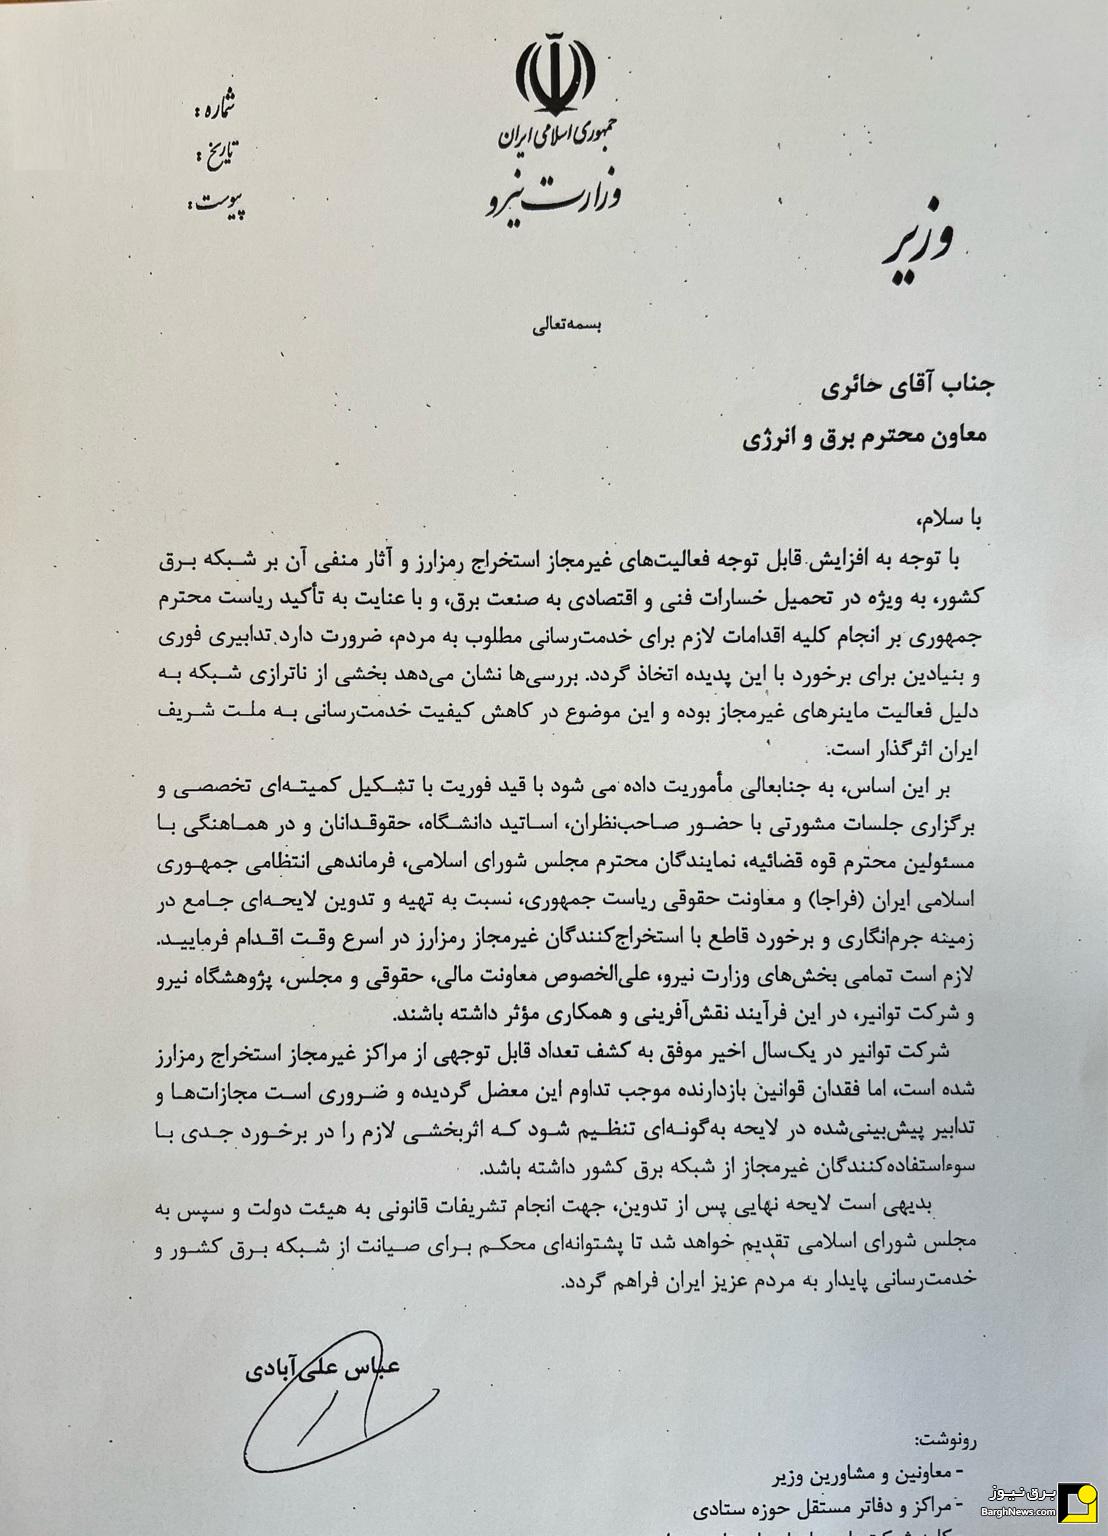 جمهوری اسلامی ایران
وزارت نیرو
شماره :
تاریخ :
پیوست :
وزیر
بسمه‌تعالی
جناب آقای حائری
معاون محترم برق و انرژی
با سلام،
با توجه به افزایش قابل توجه فعالیت‌های غیرمجاز استخراج رمزارز و آثار منفی آن بر شبکه برق
کشور، به ویژه در تحمیل خسارات فنی و اقتصادی به صنعت برق، و با عنایت به تأکید ریاست محترم
جمهوری بر انجام کلیه اقدامات لازم برای خدمت‌رسانی مطلوب به مردم، ضرورت دارد تدابیری فوری
و بنیادین برای برخورد با این پدیده اتخاذ گردد. بررسی‌ها نشان می‌دهد بخشی از ناترازی شبکه به
دلیل فعالیت ماینرهای غیرمجاز بوده و این موضوع در کاهش کیفیت خدمت‌رسانی به ملت شریف
ایران اثرگذار است.
بر این اساس، به جنابعالی مأموریت داده می شود با قید فوریت با تشکیل کمیته‌ای تخصصی و
برگزاری جلسات مشورتی با حضور صاحب‌نظران، اساتید دانشگاه، حقوقدانان و در هماهنگی با
مسئولین محترم قوه قضائیه، نمایندگان محترم مجلس شورای اسلامی، فرماندهی انتظامی جمهوری
اسلامی ایران (فراجا) و معاونت حقوقی ریاست جمهوری، نسبت به تهیه و تدوین لایحه‌ای جامع در
زمینه جرم‌انگاری و برخورد قاطع با استخراج‌کنندگان غیرمجاز رمزارز در اسرع وقت اقدام فرمایید.
لازم است تمامی بخش‌های وزارت نیرو، علی‌الخصوص معاونت مالی، حقوقی و مجلس، پژوهشگاه نیرو
و شرکت توانیر، در این فرآیند نقش‌آفرینی و همکاری مؤثر داشته باشند.
شرکت توانیر در یک‌سال اخیر موفق به کشف تعداد قابل توجهی از مراکز غیرمجاز استخراج رمزارز
شده است، اما فقدان قوانین بازدارنده موجب تداوم این معضل گردیده و ضروری است مجازات‌ها و
تدابیر پیش‌بینی‌شده در لایحه به‌گونه‌ای تنظیم شود که اثربخشی لازم را در برخورد جدی با
سوءاستفاده‌کنندگان غیرمجاز از شبکه برق کشور داشته باشد.
بدیهی است لایحه نهایی پس از تدوین، جهت انجام تشریفات قانونی به هیئت دولت و سپس به
مجلس شورای اسلامی تقدیم خواهد شد تا پشتوانه‌ای محکم برای صیانت از شبکه برق کشور و
خدمت‌رسانی پایدار به مردم عزیز ایران فراهم گردد.
عباس علی‌آبادی
رونوشت:
- معاونین و مشاورین وزیر
- مراکز و دفاتر مستقل حوزه ستادی
برق نیوز
BarghNews.com